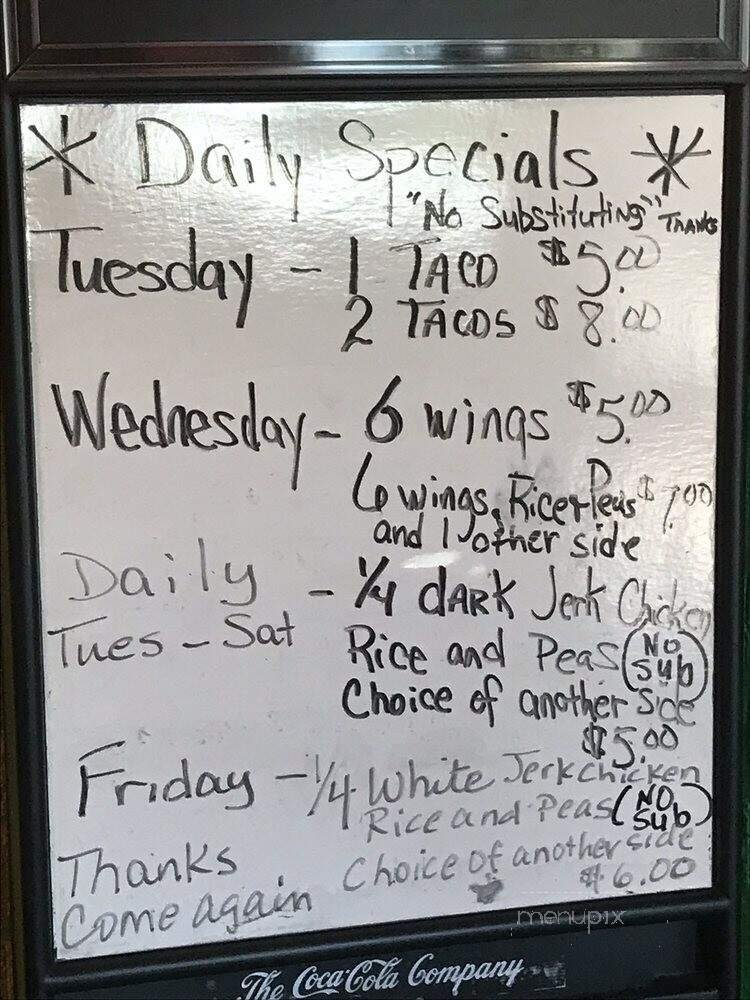 * Daily Specials *
"No Substituting" Thanks
Tuesday - 1 TACO $5.00
2 TACOS $8.00
Wednesday - 6 wings $5.00
6 wings, Rice+Peas $7.00
and 1 other side
Daily - 1/4 dARK Jerk Chicken
Tues - Sat Rice and Peas (No Sub)
Choice of another Side
$5.00
Friday - 1/4 White Jerk chicken
Rice and Peas (NO Sub)
Thanks Choice of another side
Come again $6.00
menupix
The Coca-Cola Company